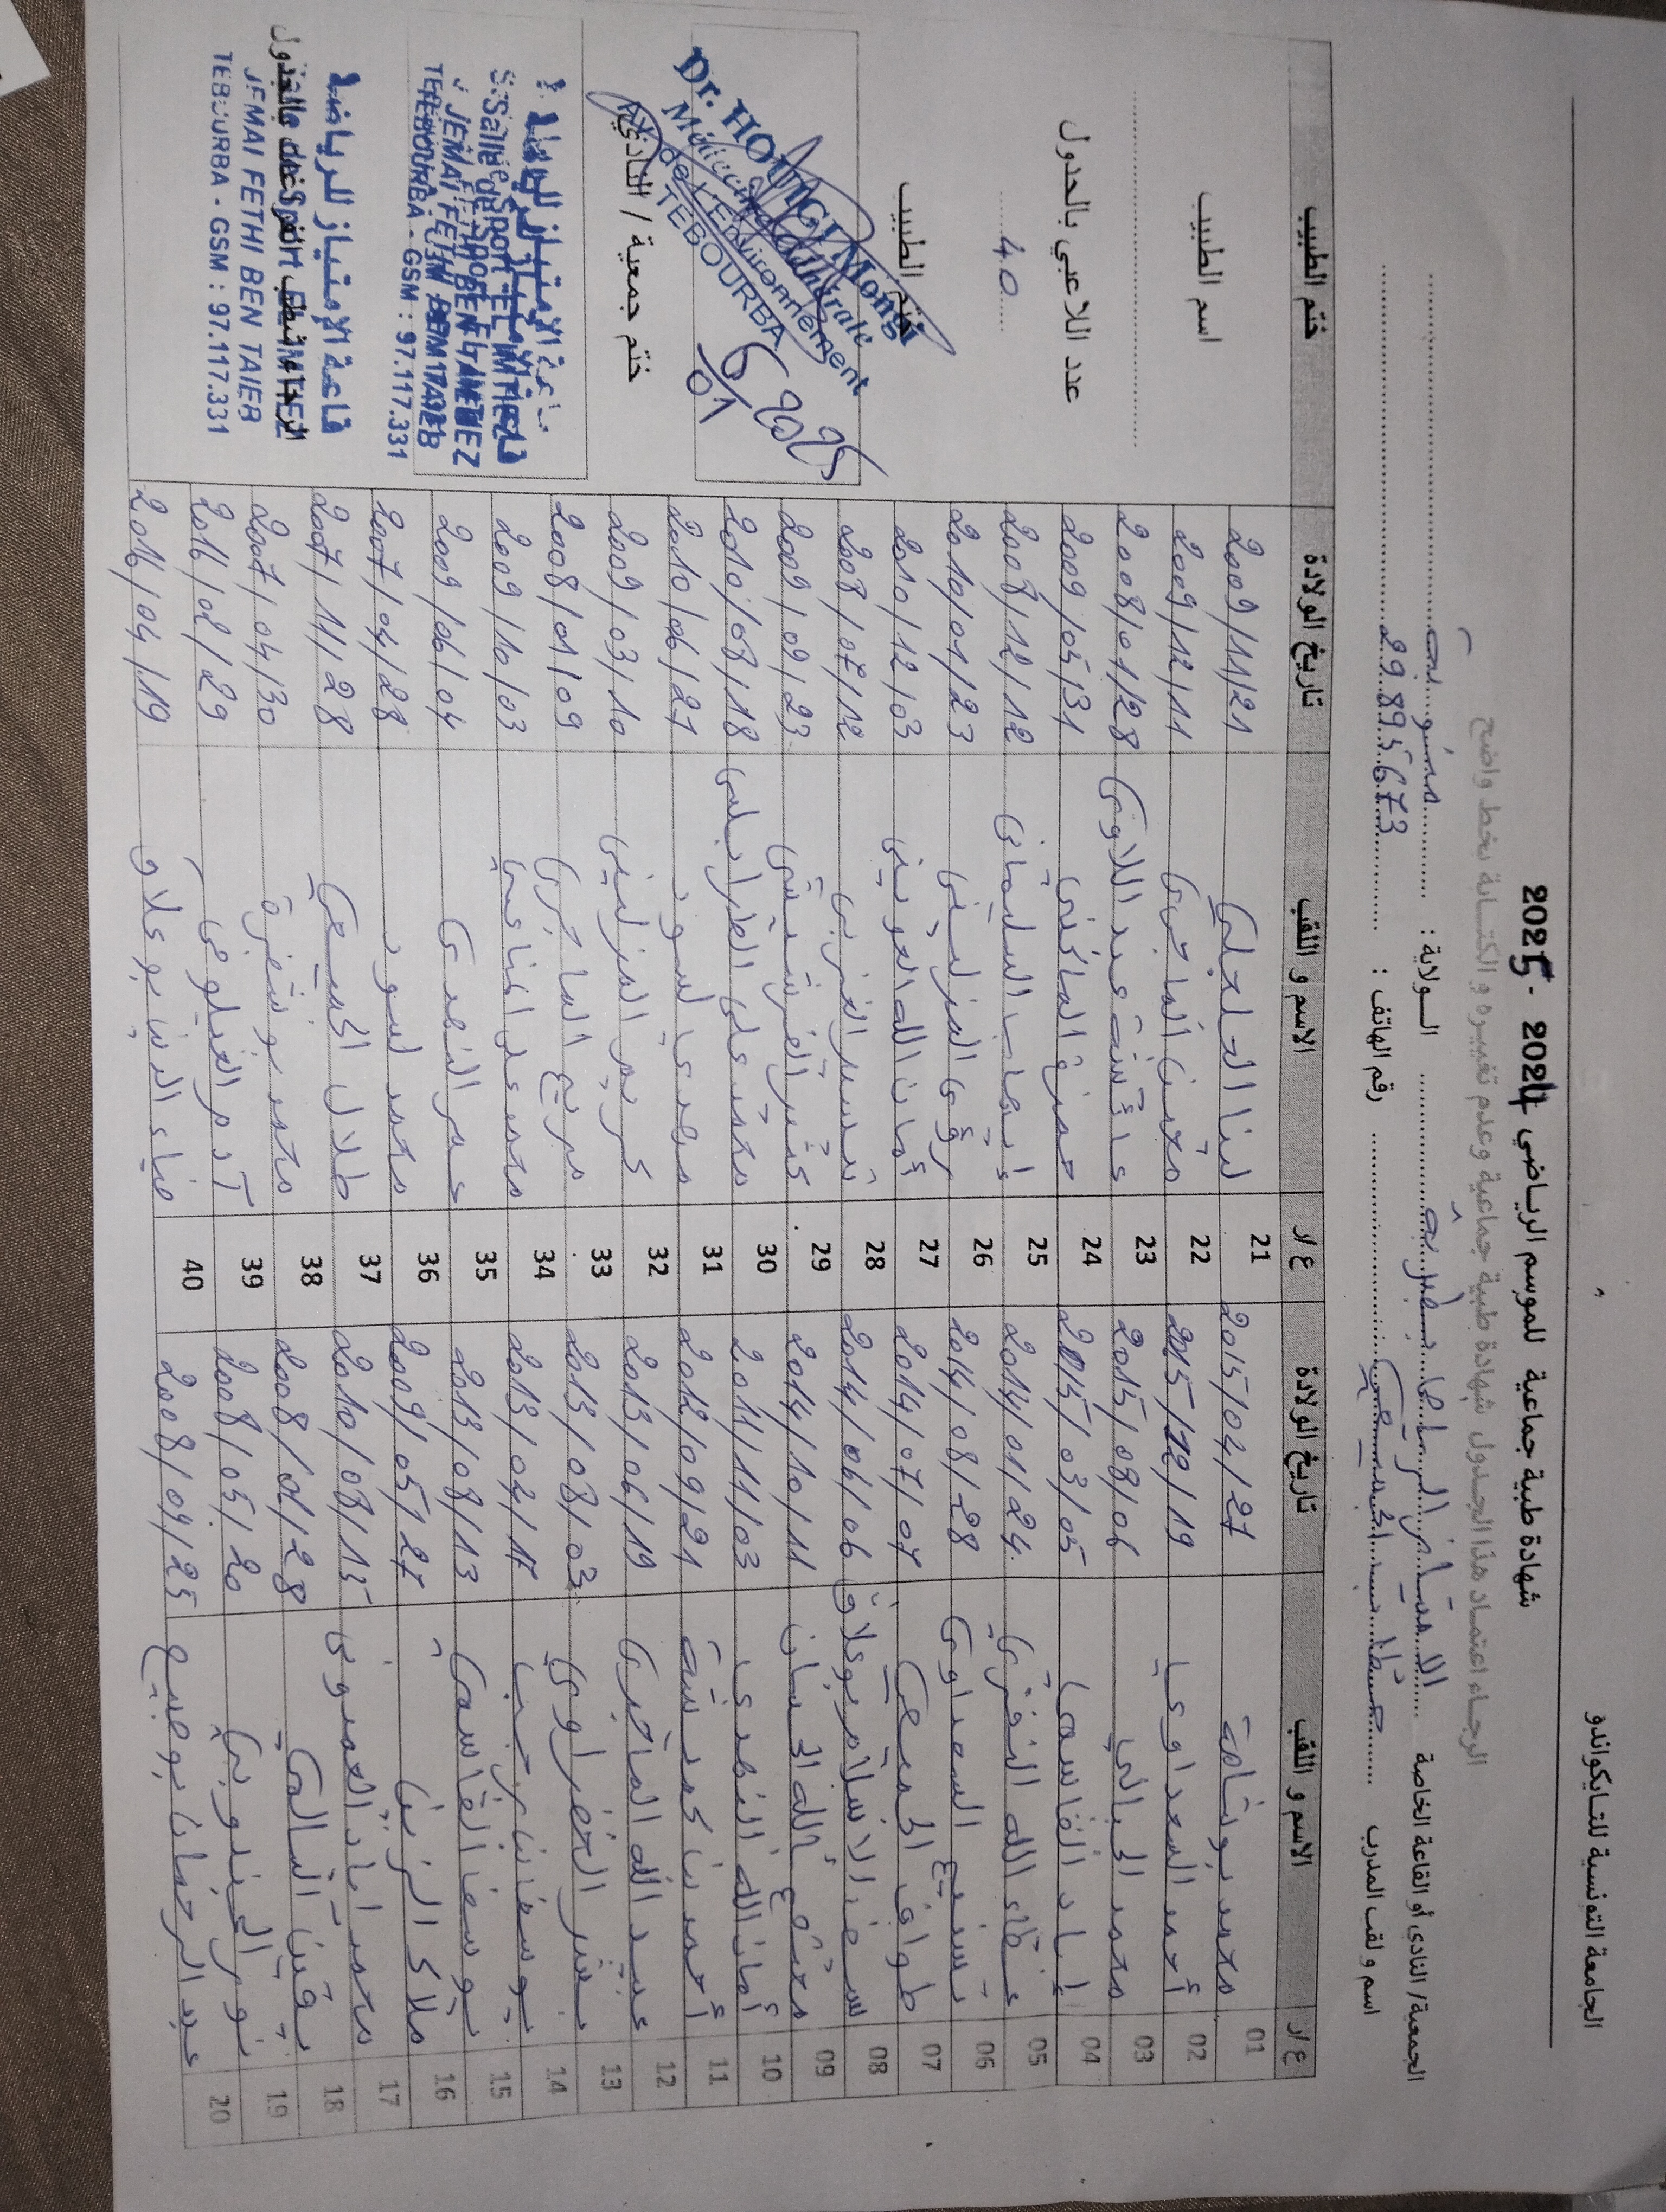 الجامعة التونسية للتايكواندو
شهادة طبية جماعية للموسم الرياضي 2024 - 2025
الرجاء اعتماد هذا الجدول شهادة طبية جماعية وعدم تغييره و الكتابة بخط واضح
الجمعية/ النادي أو القاعة الخاصة ..... الامتياز الرياضي بطبربة ..... الولاية : ..... منوبة .....
اسم و لقب المدرب ..... رقم الهاتف : ..... 29895673 .....
ع/ر الاسم و اللقب تاريخ الولادة ع/ر الاسم و اللقب تاريخ الولادة ختم الطبيب
01 محمد بوشامة 2015/04/27 21 لينا الدلجلي 2009/11/21
02 أحمد السعداوي 2015/12/19 22 الماجري 2009/12/11
03 محمد الجبالي 2015/08/06 23 عائشة عبد اللاوي 2008/01/28
04 إياد القاسمي 2015/03/05 24 حمزة الماكني 2009/05/31
05 عطاء الله النفزي 2014/01/24 25 إيهاب السليماني 2008/12/12
06 السعداوي 2014/08/28 26 المزليني 2010/01/23
07 2014/07/07 27 أمان الله العويني 2010/12/03
08 سيف الاسلام بوعلاق 2014/06/06 28 تيسير الغزيي 2008/07/12
09 2014/10/11 29 2009/09/23
10 أمان الله النهدي 2011/11/03 30 علي الطرابلسي 2010/08/18
11 أحمد بن حمد 2012/09/21 31 مهدي لسود 2010/06/27
12 عبد الله الماجري 2013/06/19 32 مريم المزليني 2009/03/10
13 الخضراوي 2013/08/03 33 مريم الماجري 2008/01/09
14 يوسف بن رجب 2013/02/17 34 محمد علي 2009/10/03
15 يوسف القاسمي 2013/08/13 35 عمر النهدي 2009/06/04
16 ملاك الزين 2009/05/27 36 محمد لسود 2007/04/28
17 محمد إياد العمدوني 2010/08/15 37 طلال 2007/11/28
18 يقين السالمي 2008/01/28 38 محمد بوشفرة 2007/04/30
19 نور الجندوبي 2008/05/20 39 آدم الغيلوفي 2016/02/29
20 عبد الرحمان بوضبيع 2008/09/25 40 ضياء الدين بوعلاق 2016/04/19
اسم الطبيب
عدد اللاعبي بالجدول
40
ختم الطبيب
Dr. HOUIGUI Mongi
Médecine Générale
de l'Environnement
TEBOURBA
ختم جمعية / النادي
قاعة الإمتياز للرياضة
Salle de Sport EL IMTIEZ
JEMAI FETHI BEN TAIEB
TEBOURBA - GSM : 97.117.331
قاعة الإمتياز للرياضة
JEMAI FETHI BEN TAIEB
TEBOURBA - GSM : 97.117.331